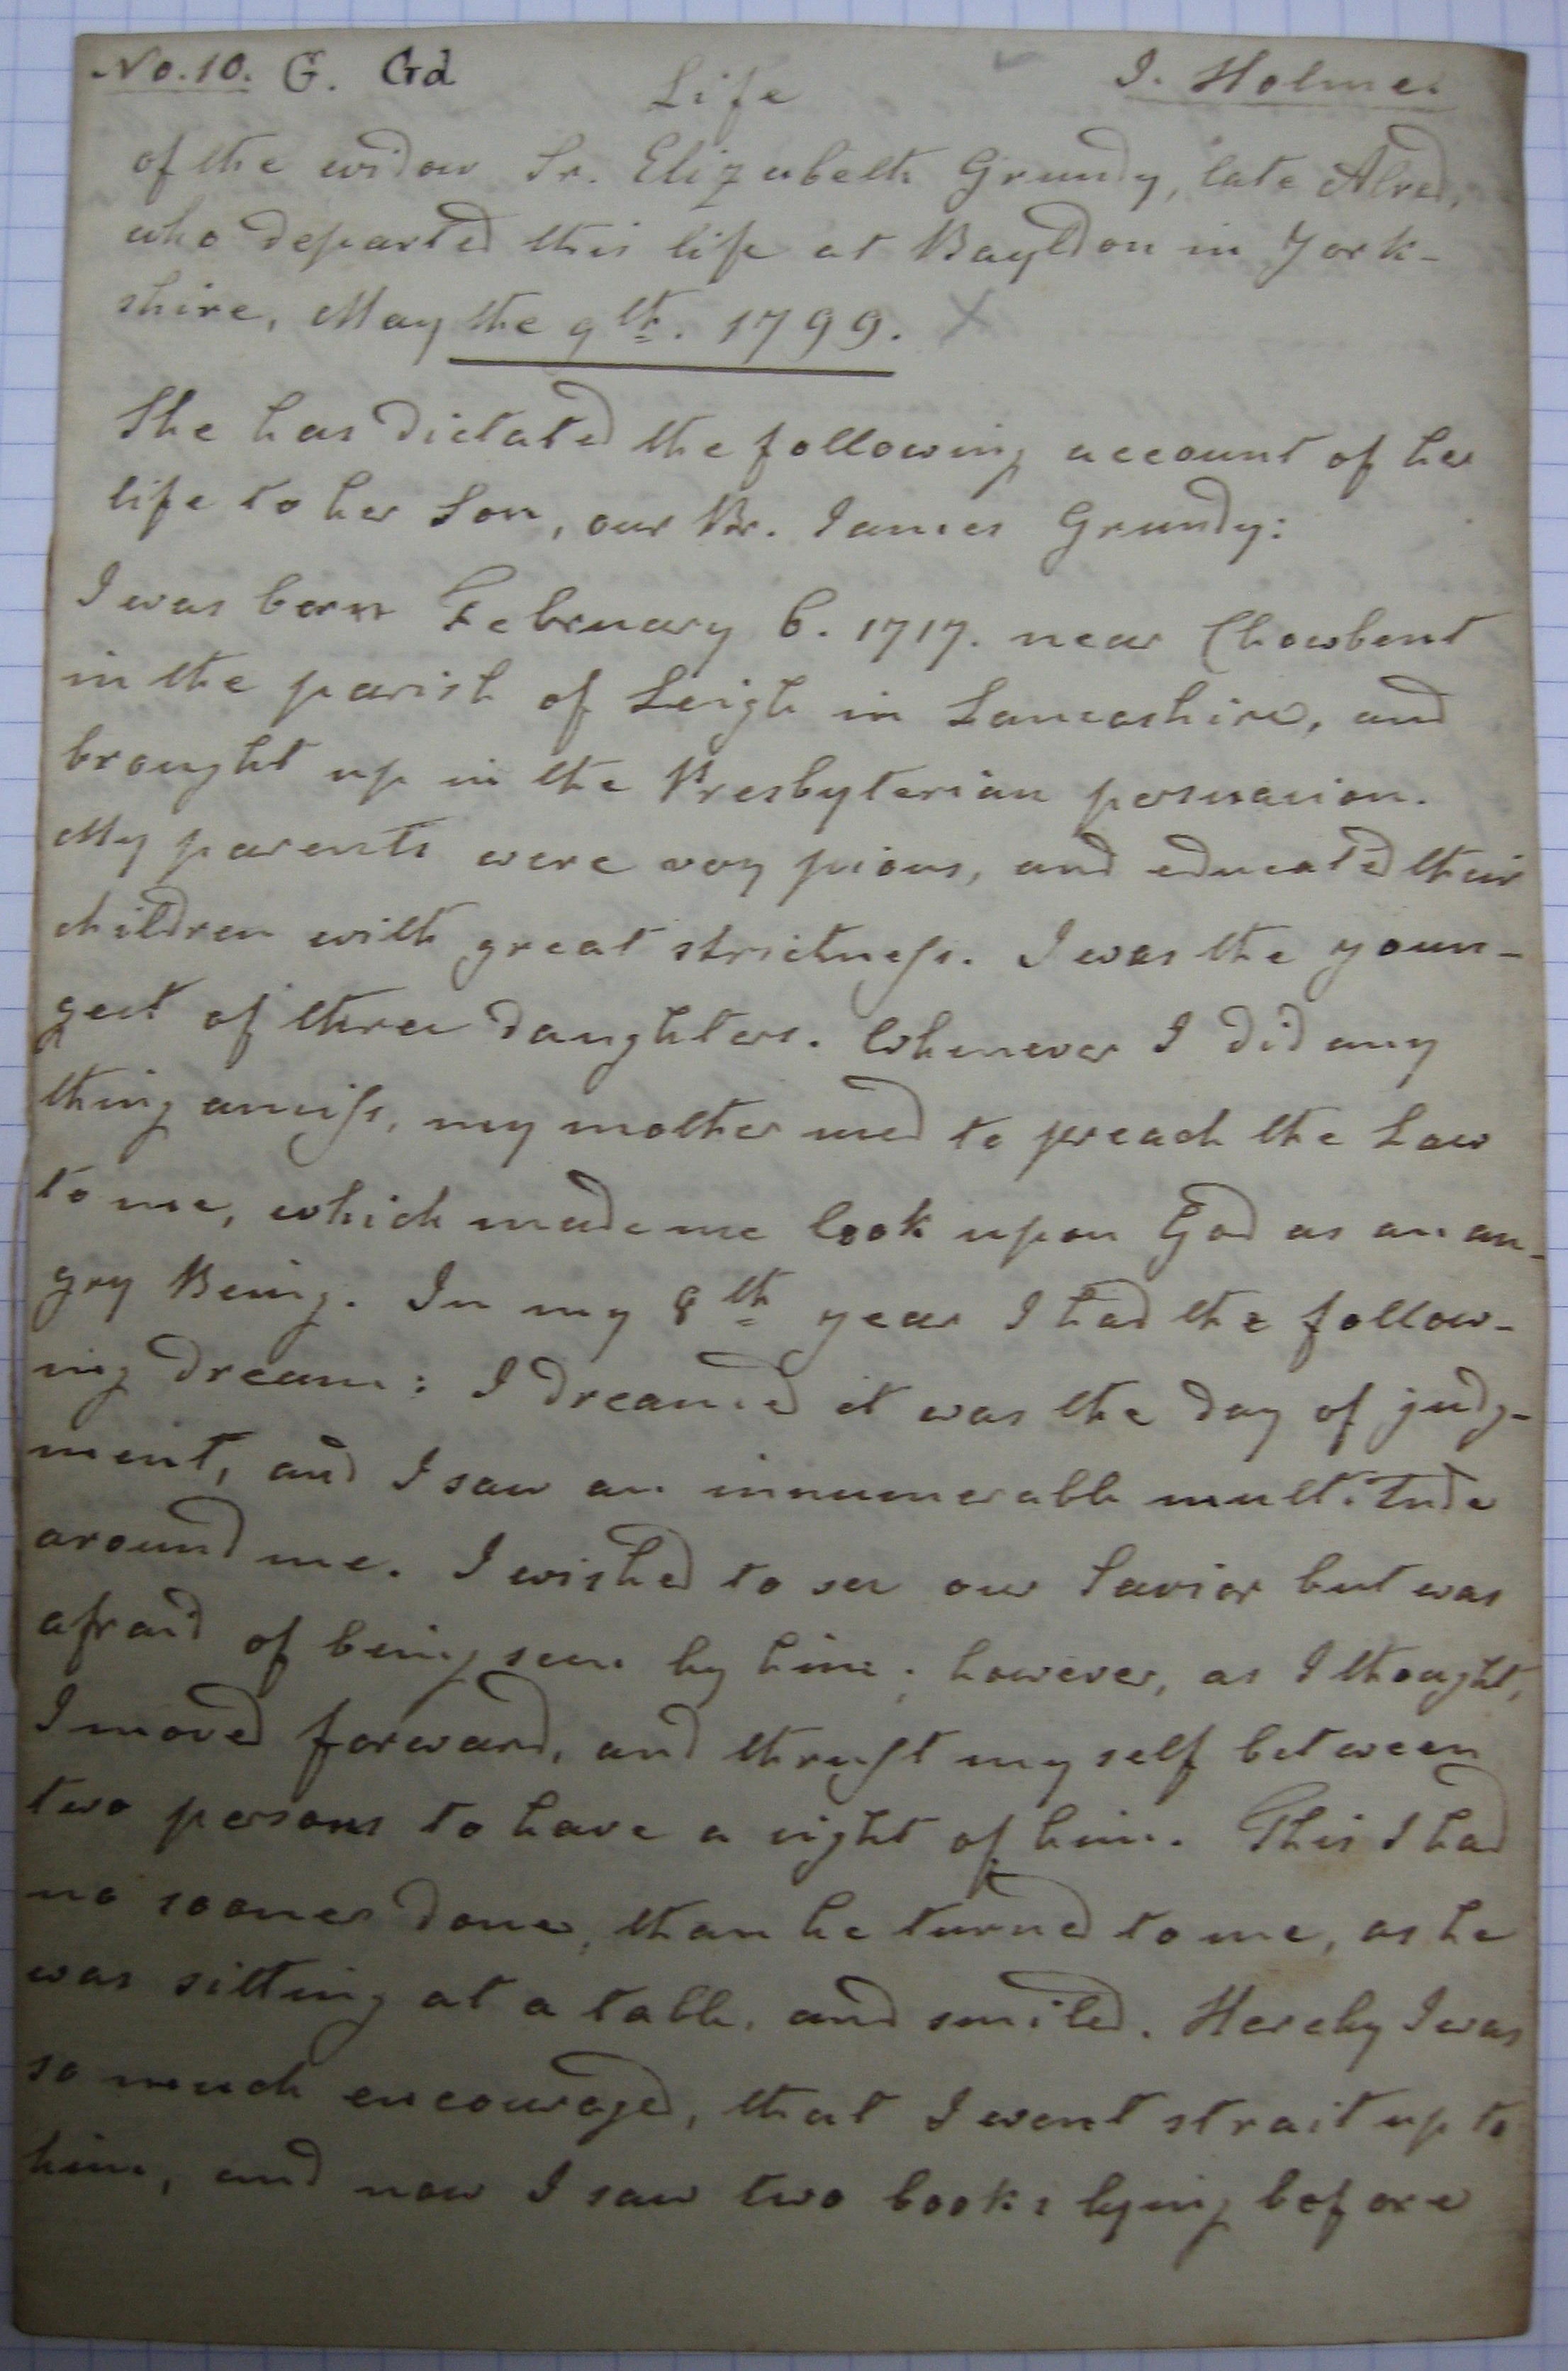 No. 10. G. Gd
I. Holmes
Life
of the widow Sr. Elizabeth Grundy, late Alred,
who departed this life at Bayldon in York-
shire, May the 9th. 1799. X
She has dictated the following account of her
life to her Son, our Br. James Grundy:
I was born February 6. 1717. near Chowbent
in the parish of Leigh in Lancashire, and
brought up in the Presbyterian persuasion.
My parents were very pious, and educated their
children with great strictneſs. I was the youn-
gest of three daughters. Whenever I did any
thing amiſs, my mother used to preach the Law
to me, which made me look upon God as an an-
gry Being. In my 8th year I had the follow-
ing dream: I dreamed it was the day of judg-
ment, and I saw an innumerable multitude
around me. I wished to see our Savior but was
afraid of being seen by him; however, as I thought,
I moved forward, and thruſt myself between
two persons to have a sight of him. This I had
no sooner done, than he turned to me, as he
was sitting at a table, and smiled. Hereby I was
so much encouraged, that I went strait up to
him, and now I saw two books lying before